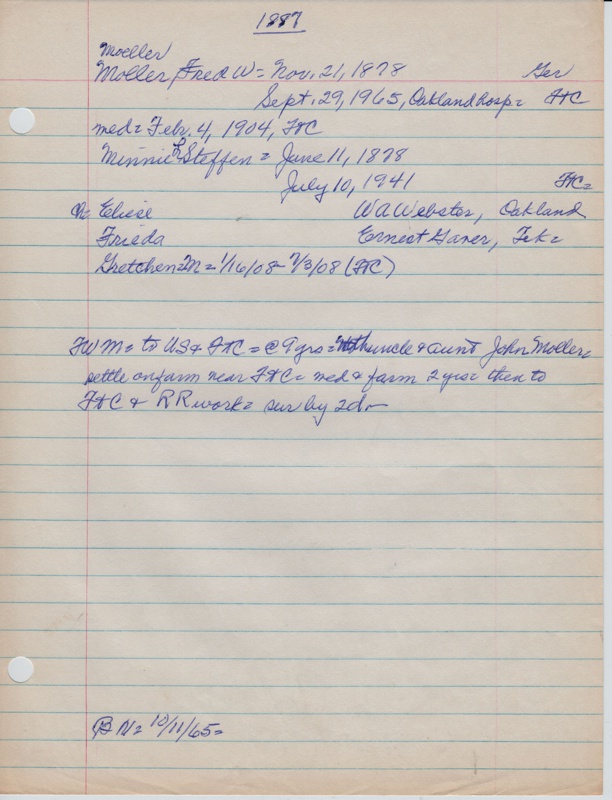 1887
Moeller
Moller, Fred W = Nov. 21, 1878 Ger
Sept. 29, 1965, Oakland hosp = FtC
med = Febr. 4, 1904, FtC
Minnie L Steffen = June 11, 1878
July 10, 1941 FtC =
Ch = Eliese W A Webster, Oakland
Frieda Ernest Garer, Tek =
Gretchen = M = 1/16/08 - 7/3/08 (FtC)
FWM = to US & FtC = @ 9 yrs = with uncle & aunt John Mollers
settle on farm near FtC = med & farm 2 yrs = then to
FtC & RR work = sur by 2d -
BN = 10/11/65 =